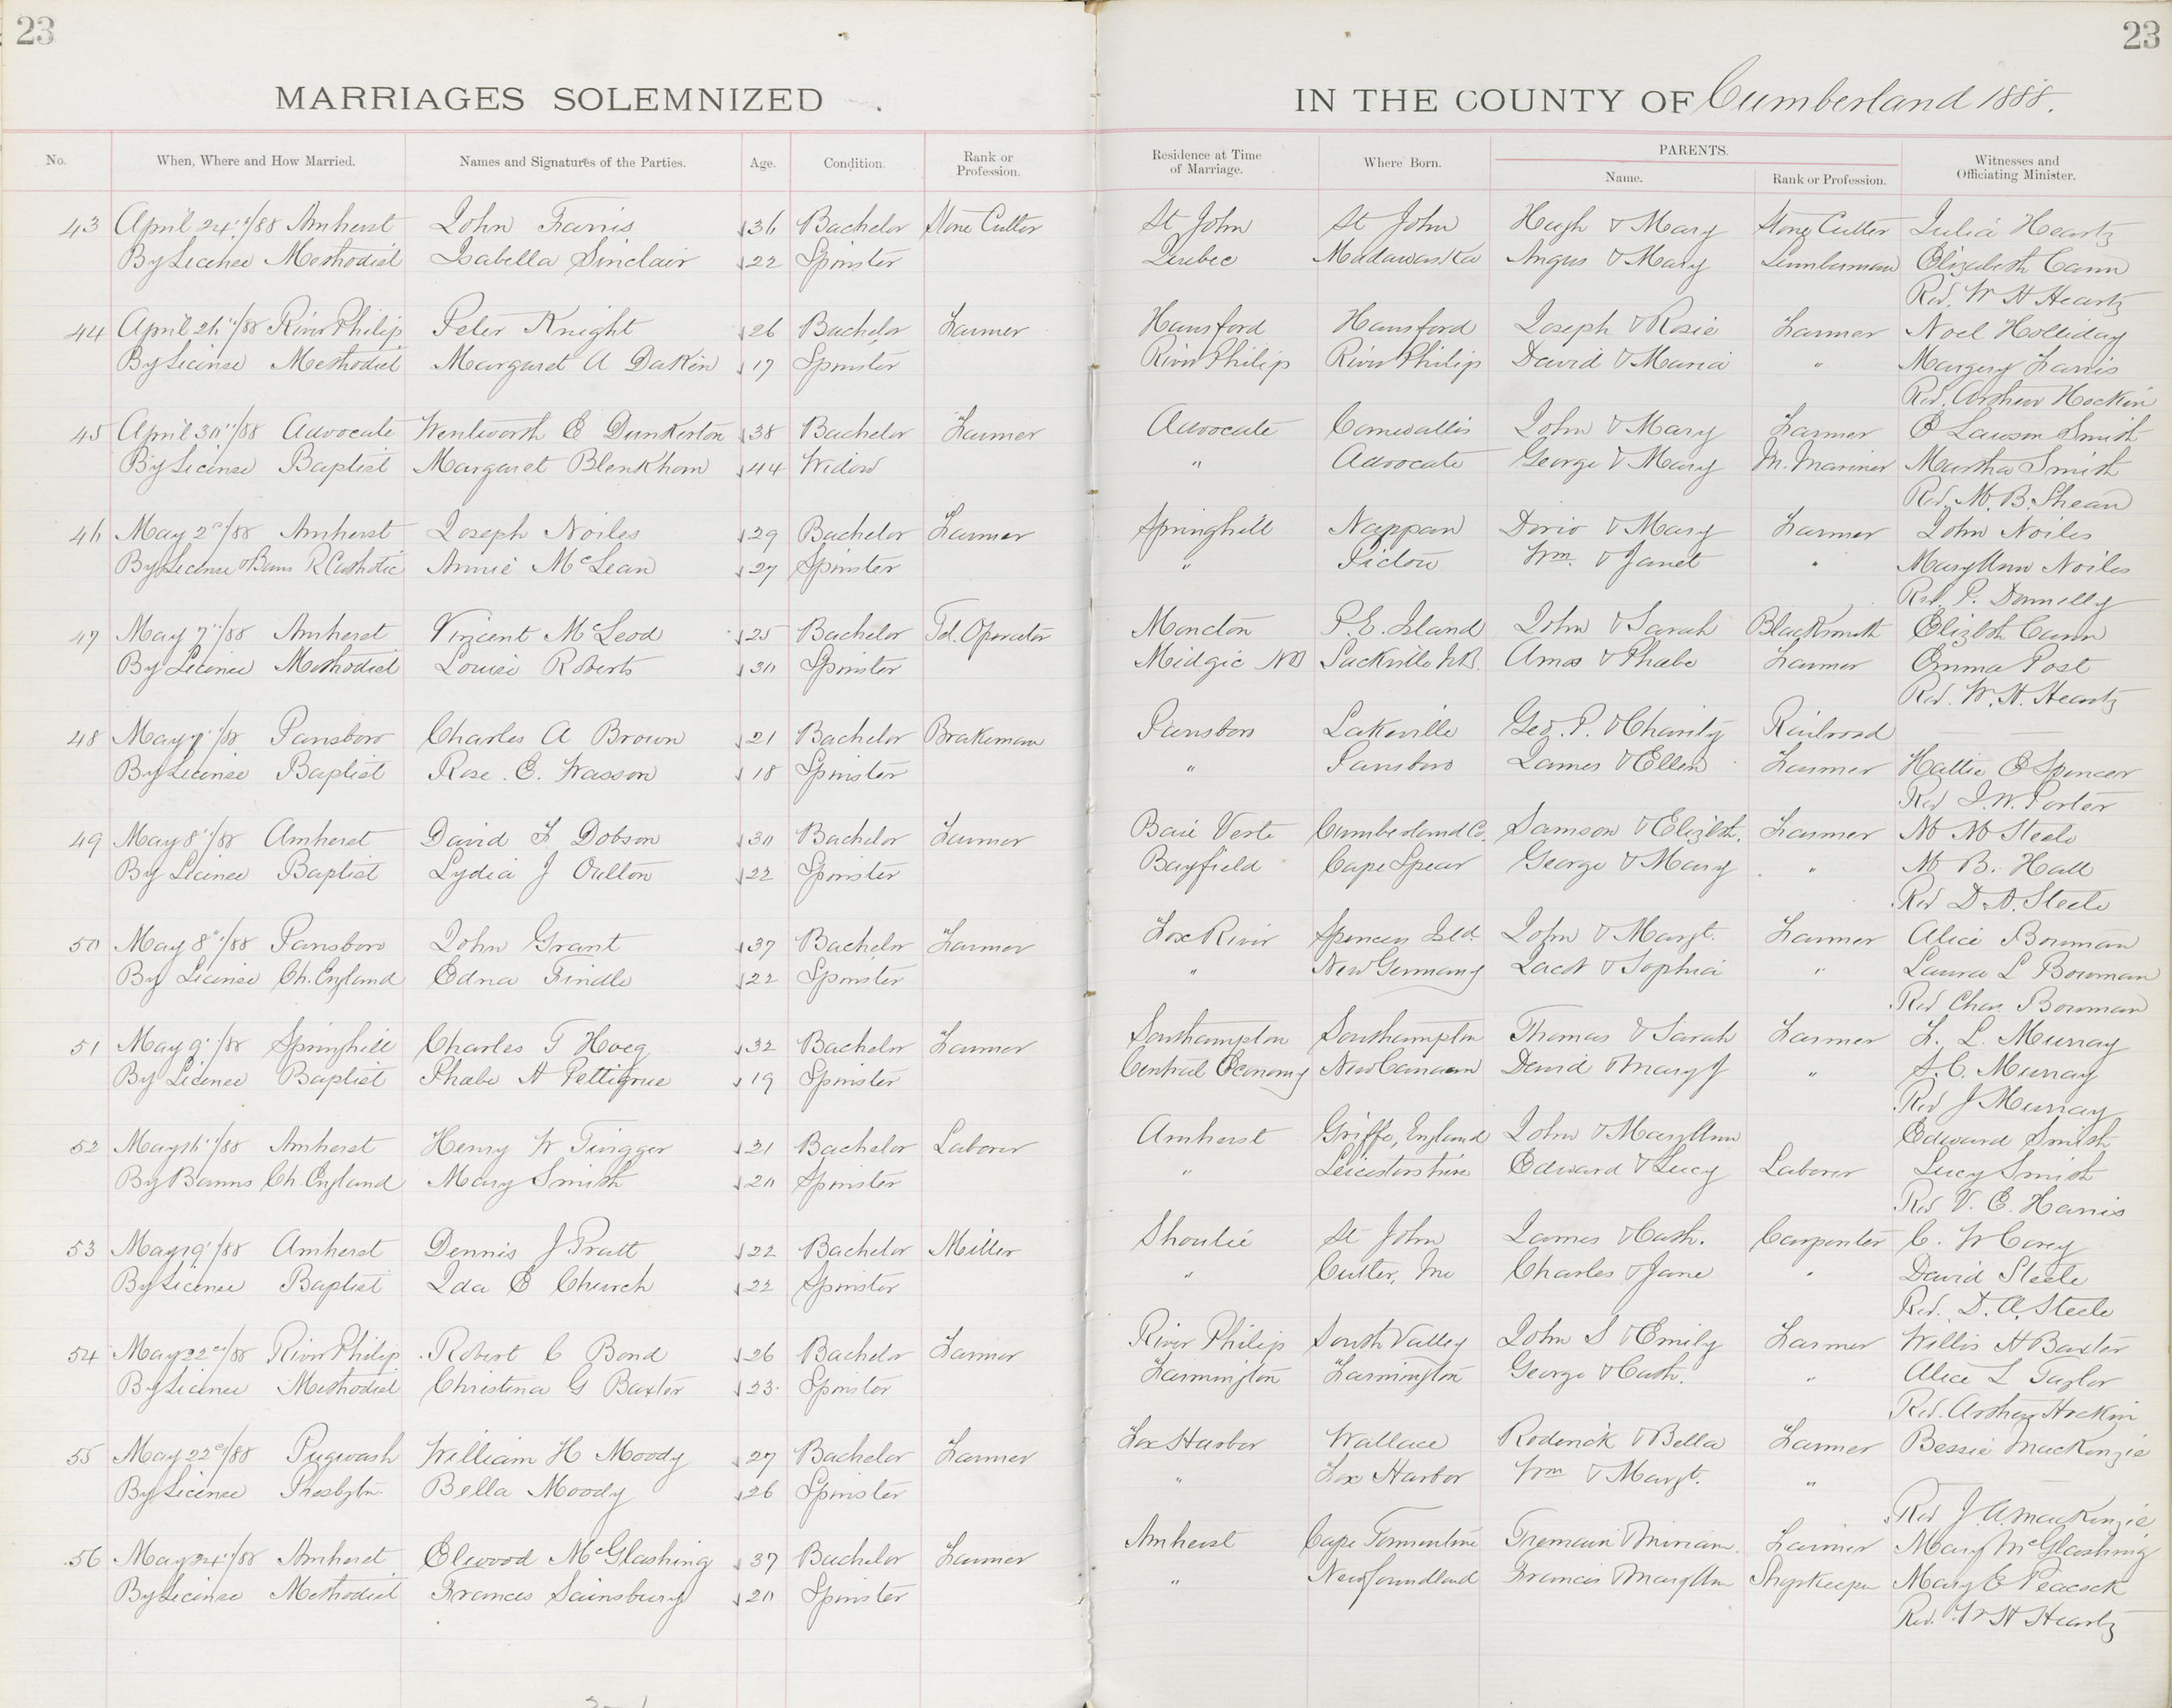 23
23
MARRIAGES SOLEMNIZED
IN THE COUNTY OF Cumberland 1888.
No. When, Where and How Married. Names and Signatures of the Parties. Age. Condition. Rank or Profession. Residence at Time of Marriage. Where Born. PARENTS. Name. Rank or Profession. Witnesses and Officiating Minister.
43 April 24"/88 Amherst John Farris 36 Bachelor Stone Cutter St John St John Hugh & Mary Stone Cutter Julia Heartz
By License Methodist Isabella Sinclair 22 Spinster Quebec Madawaska Angus & Mary Lumberman Elizabeth Cann
Rev. W H Heartz
44 April 26"/88 River Philip Peter Knight 26 Bachelor Farmer Hansford Hansford Joseph & Rosie Farmer Noel Holliday
By License Methodist Margaret A Dakin 17 Spinster River Philip River Philip David & Maria " Margery Farris
Rev. Arthur Hockin
45 April 30"/88 Advocate Wentworth E Dunkerton 38 Bachelor Farmer Advocate Cornwallis John & Mary Farmer E Lawson Smith
By License Baptist Margaret Blenkhorn 44 Widow " Advocate George & Mary M. Mariner Martha Smith
Rev. M. B. Shean
46 May 2d/88 Amherst Joseph Noiles 29 Bachelor Farmer Springhill Nappan & Mary Farmer John Noiles
By License & Bans R Catholic Annie McLean 27 Spinster " Pictou Wm. & Janet " Mary Ann Noiles
Rev. P. Donnelly
47 May 7"/88 Amherst Vincent McLeod 25 Bachelor Tel. Operator Moncton P. E. Island John & Sarah Blacksmith Elizbth Cann
By License Methodist Louise Roberts 30 Spinster Midgic NB Sackville N.B. Amos & Phebe Farmer Emma Post
Rev. W. H. Heartz
48 May 7"/88 Parrsboro Charles A Brown 21 Bachelor Brakeman Parrsboro Lakeville Geo. P. & Charity Railroad
By License Baptist Rose. E. Wasson 18 Spinster " Parrsboro James & Ellen Farmer Hattie E Spencer
Rev J. W. Porter
49 May 8"/88 Amherst David F Dobson 30 Bachelor Farmer Baie Verte Cumberland Co. Samson & Elizbth. Farmer M M Steele
By License Baptist Lydia J Oulton 22 Spinster Bayfield Cape Spear George & Mary " M B. Hall
Rev D. A. Steele
50 May 8"/88 Parrsboro John Grant 37 Bachelor Farmer Fox River Spencers Isld. John & Margt. Farmer Alice Bowman
By License Ch. England Edna Findle 22 Spinster " New Germany Jacob & Sophia " Laura L Bowman
Rev Chas Bowman
51 May 9"/88 Springhill Charles T Hoeg 32 Bachelor Farmer Southampton Southampton Thomas & Sarah Farmer F. L. Murray
By License Baptist Phebe A Pettigrue 19 Spinster Central Economy New Canaan David & Mary J " S. C. Murray
Rev J Murray
52 May 16"/88 Amherst Henry W Twigger 21 Bachelor Laborer Amherst Griffe, England John & Mary Ann Edward Smith
By Banns Ch. England Mary Smith 20 Spinster " Leicestershire Edward & Lucy Laborer Lucy Smith
Rev V. E. Harris
53 May 19"/88 Amherst Dennis J Pratt 22 Bachelor Miller Shoulie St John James & Cath. Carpenter C. W Corey
By License Baptist Ida E Church 22 Spinster " Cutler, Me Charles & Jane " David Steele
Rev. D. A. Steele
54 May 22d/88 River Philip Robert C Bond 26 Bachelor Farmer River Philip South Valley John S & Emily Farmer Willis A Baxter
By License Methodist Christina G Baxter 23 Spinster Farmington Farmington George & Cath. " Alice L Taylor
Rev. Arthur Hockin
55 May 22d/88 Pugwash William H Moody 27 Bachelor Farmer Fox Harbor Wallace Roderick & Bella Farmer Bessie MacKenzie
By License Presbytn Bella Moody 26 Spinster " Fox Harbor Wm & Margt. "
Rev J. A. MacKenzie
56 May 24"/88 Amherst Elwood McGlashing 37 Bachelor Farmer Amherst Cape Tormentine Tremain & Miriam. Farmer Mary McGlashing
By License Methodist Frances Sainsbury 20 Spinster " Newfoundland Francis & Mary Ann Shopkeeper Mary E Peacock
Rev. W H Heartz